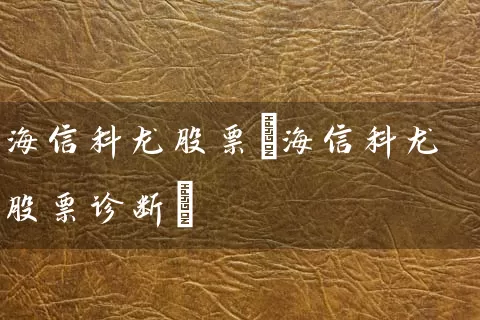 海信科龙股票海信科龙
股票诊断